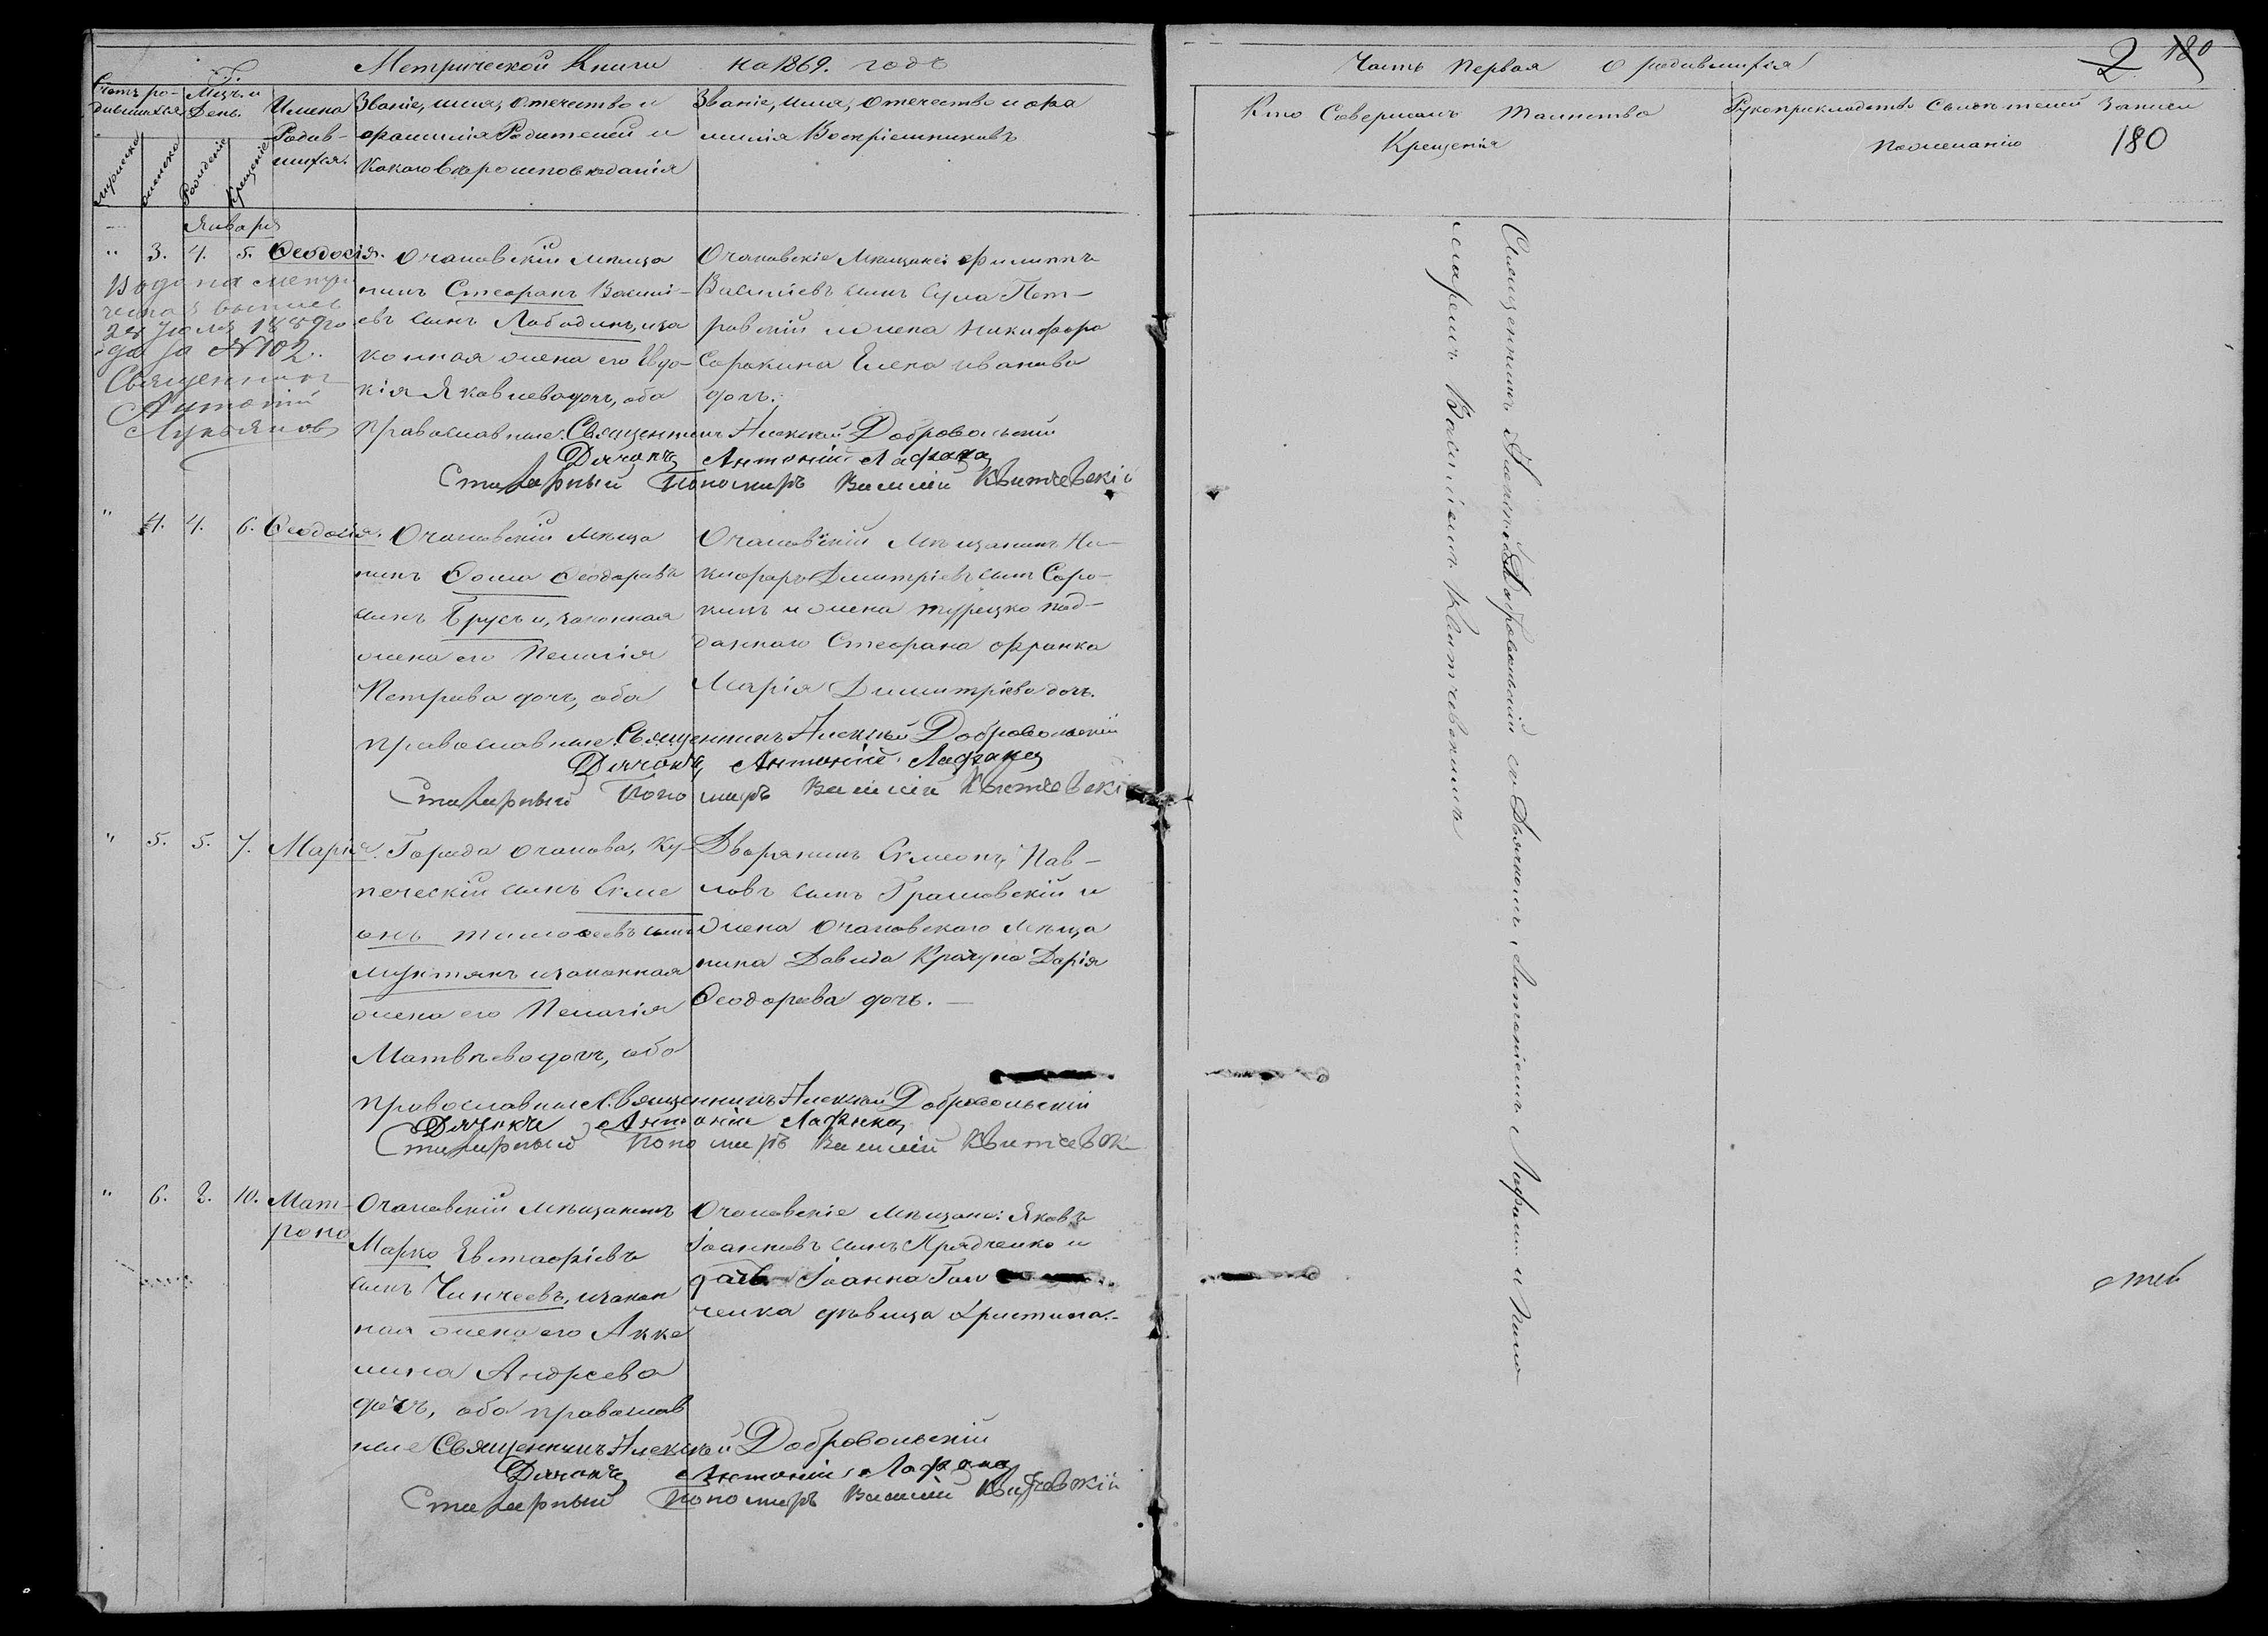 Метрической Книги на 1869. годъ
Часть Первая О родившихся
2 180
Счетъ ро-
дившихся
Мѣц. и
День.
Имена
Родив-
шихся.
Званіе, имя, отечество и
фамилія Родителей и
какого вѣроисповѣданія
Званіе, имя, отечество и фа
милія Воспріемниковъ
мужеска
женска
Рожденіе
Крещеніе
Кто Совершалъ Таинство
Крещенія
Рукоприкладство свидѣтелей записи
по желанію
180
Января
" 3. 4. 5. Ѳеодосія.
Очаковскій мѣща
нинъ Стефанъ Васил-
евъ сынъ Лободинъ, иза
конная жена его Евдо-
кія Яковлева дочь, оба
православные.
Очаковскіе мѣщане: Филиппъ
Василіевъ сынъ Сула Пет-
ровскій и жена Никифора
Сорокина Елена Иванова
дочь.
года за № 102.
Священникъ
Антоній
Лукьяновъ
Священникъ Алексѣй Добровольскій
Дячокъ Антоній Лафаки
Стихарный Пономарь Василій Квитчевскій
" 4. 4. 6. Ѳеодосія.
Очаковскій мѣща
нинъ Ѳома Ѳеодоровъ
сынъ Брусъ и, законная
жена его Пелагія
Петрова дочь, оба
православные.
Очаковскій мѣщанинъ Ни-
кифоръ Димитріевъ сынъ Соро-
кинъ и жена турецко под-
даннаго Стефана Франка
Марія Димитріева дочь.
Священникъ Алексѣй Добровольскій
Дячокъ Антоній Лафаки
Стихарный Пономарь Василій Квитчевскі
" 5. 5. 7. Марія.
Города Очакова, Ку-
печескій сынъ Симе
онъ Тимоѳеевъ сынъ
Мунтянъ изаконная
жена его Пелагія
Матвѣева дочь, оба
православные.
Дворянинъ Симеонъ Пав-
ловъ сынъ Грамовскій и
жена Очаковскаго мѣща
нина Давида Крачуна Дарія
Ѳеодорова дочь. —
Священникъ Алексѣй Добровольскій
Дячокъ Антоній Лафаки
Стихарный Пономарь Василій Квитчевск
" 6. 2. 10. Мат-
рона
Очаковскій мѣщанинъ
Марко Евстафіевъ
сынъ Чинчеевъ, изакон
ная жена его Акке
лина Андреева
дочь, оба православ
ные
Очаковскіе мѣщане: Яковъ
Іоанновъ сынъ Прядченко и
дочь Іоанна Гон
ченка дѣвица Христина.-
Священникъ Алексѣй Добровольскій
Дячокъ Антоній Лафаки
Стихарный Пономарь Василій Квитчевскій
Священникъ Алексѣй Добровольскій съ Дьячкомъ Антоніемъ Лафаки и Поно
маремъ Василіемъ Квитчевскимъ